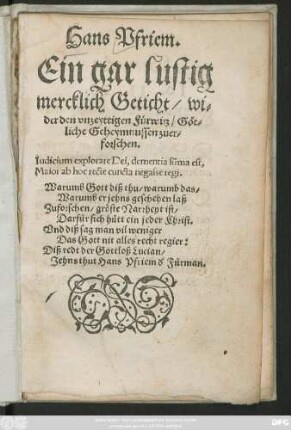 Hans Pfriem.
Ein gar lustig
mercklich Geticht/ wi-
der den vnzeyttigen Fürwitz/ Göt-
liche Geheymnussen zuer-
forschen.
Iudicium explorare Dei, dementia sũma est,
Maior ab hoc recte cuncta negasse regi.
Warumb Gott diß thu/ warumb das-
Warumb er jehns geschehen laß
Zuforschen/ gröste Narrheyt ist/
Darfür sich hütt ein jeder Christ.
Vnd diß sag man vil weniger
Das Gott nit alles recht regier:
Diß redt der Gottloß Lucian/
Jehns thut Hans Pfriem ď Fürman.